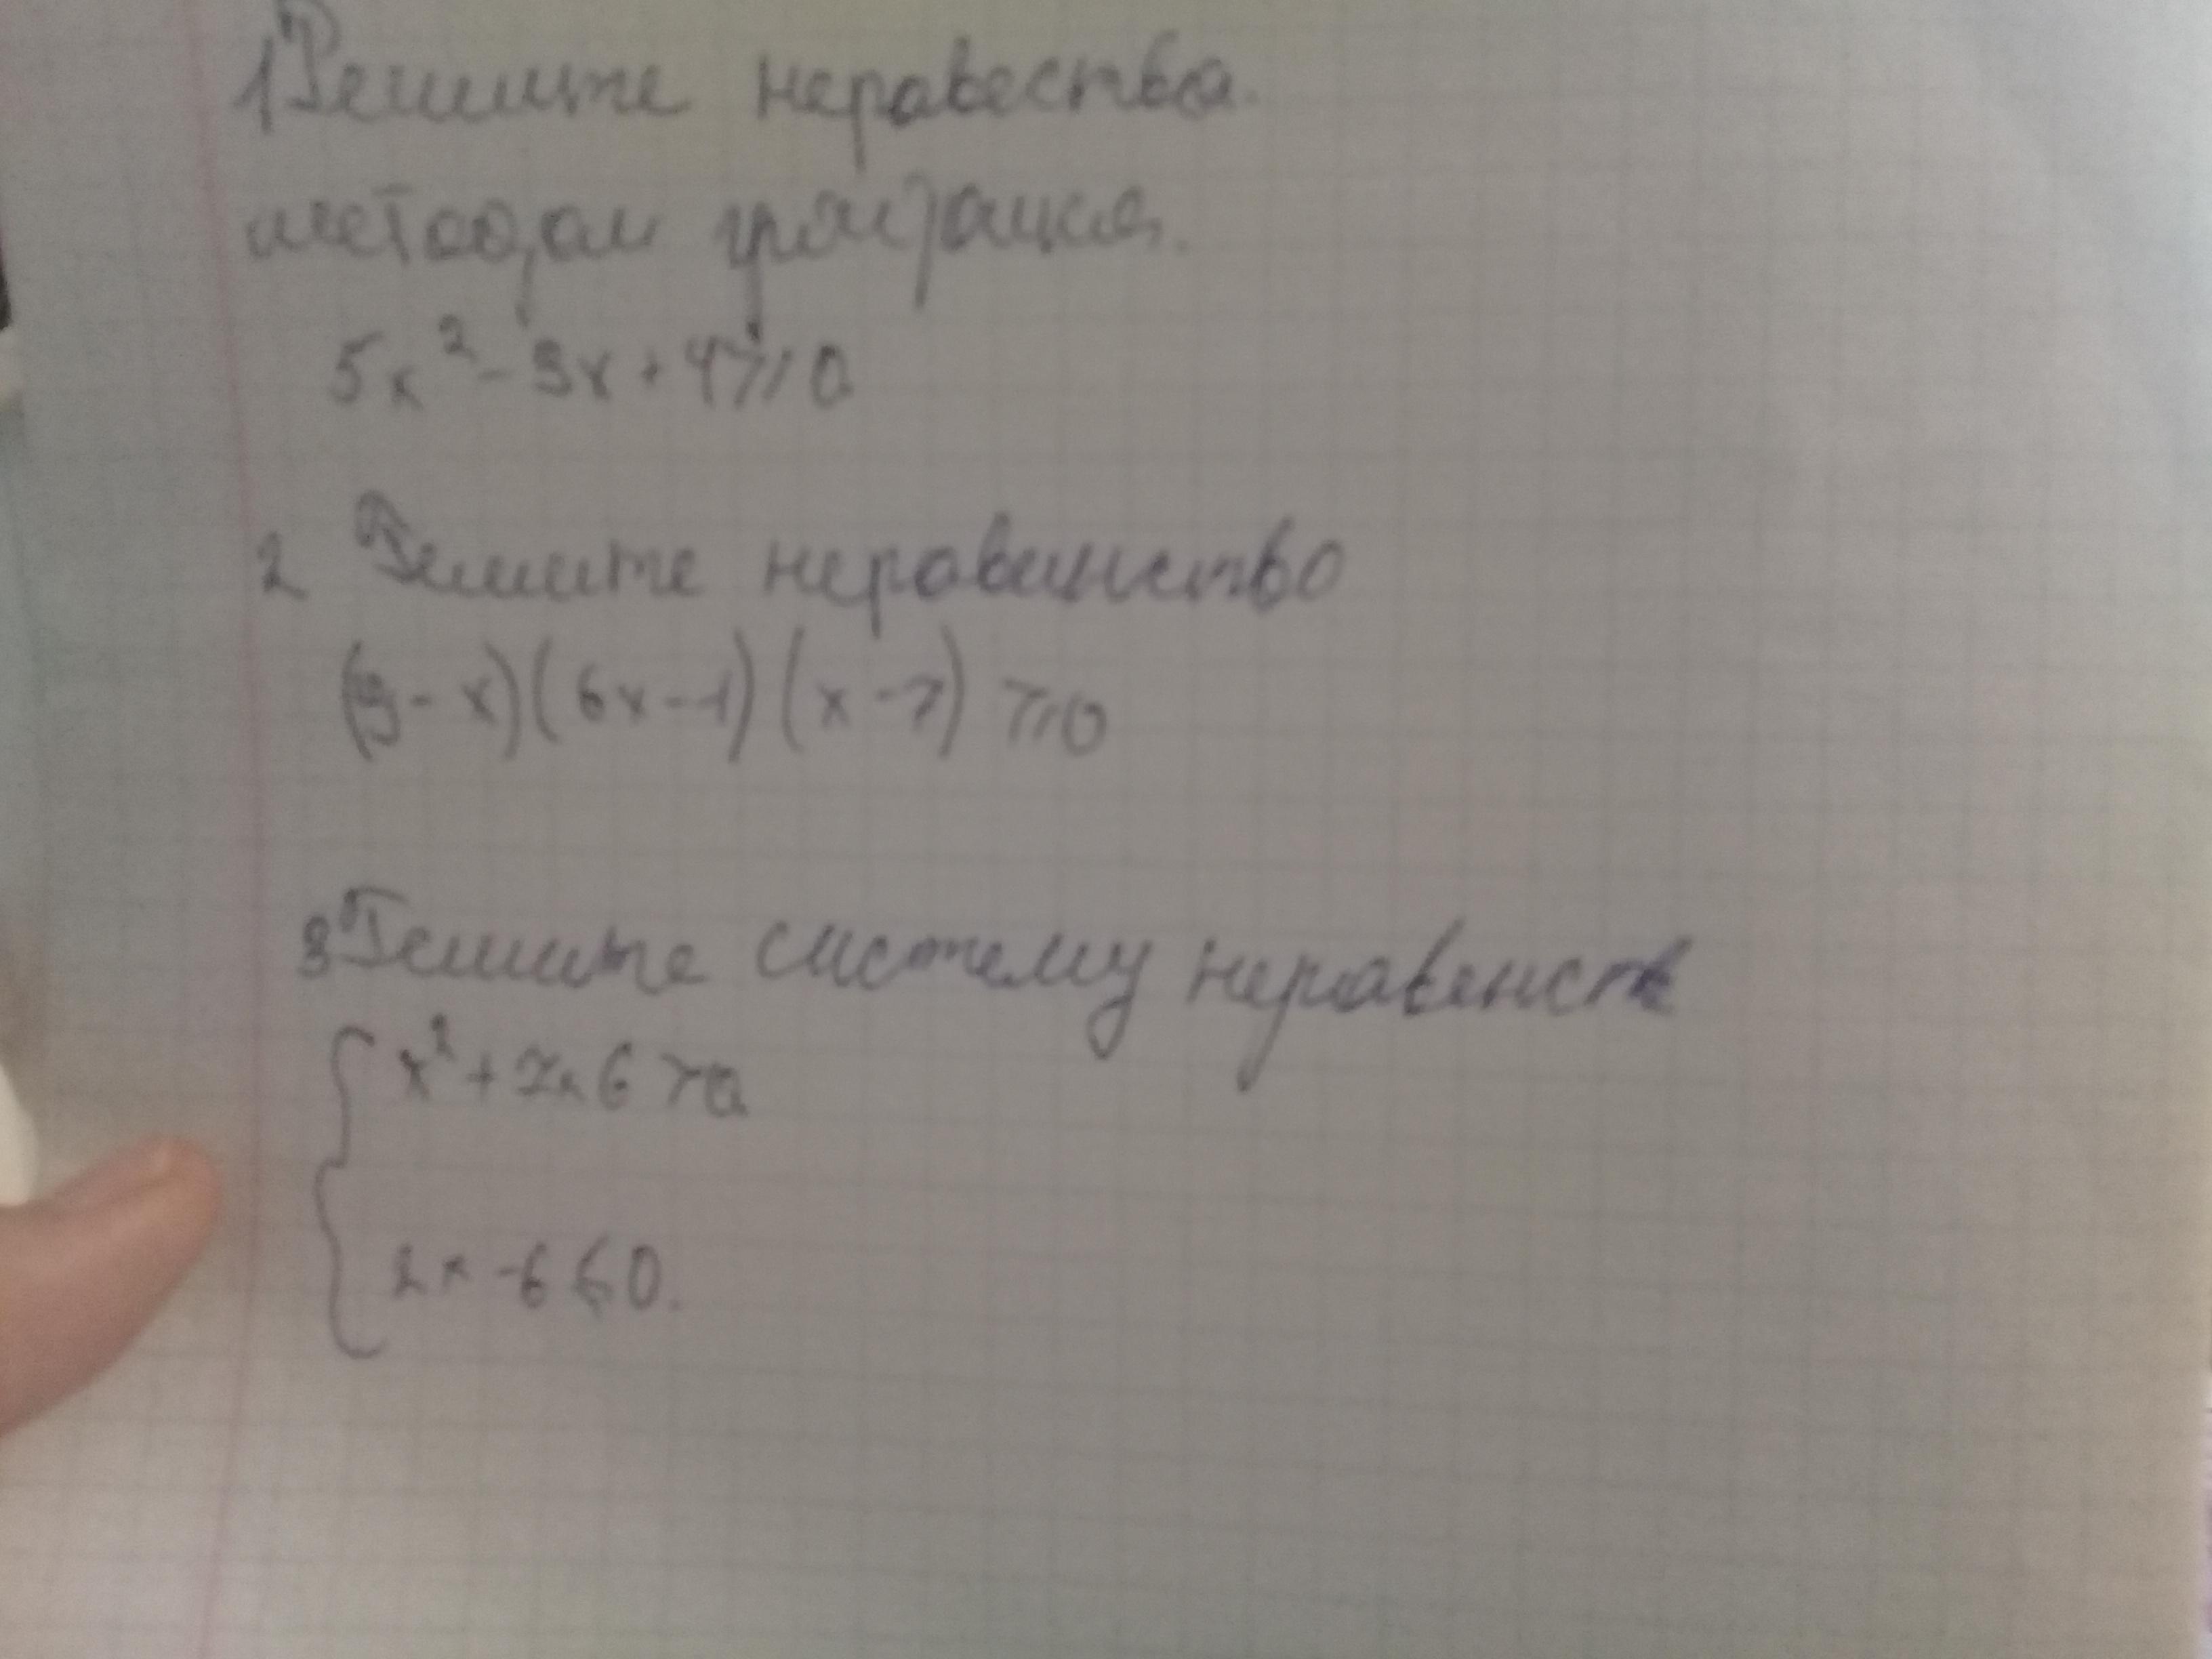 1 Решите неравества
методом
5x² - 3x + 4 ⩾ 0
2 Решите неравенство
(9 - x)(6x - 1)(x - 7) ⩾ 0
3 Решите систему неравенств
x² + 7x 6 > 0
2x - 6 ⩽ 0.